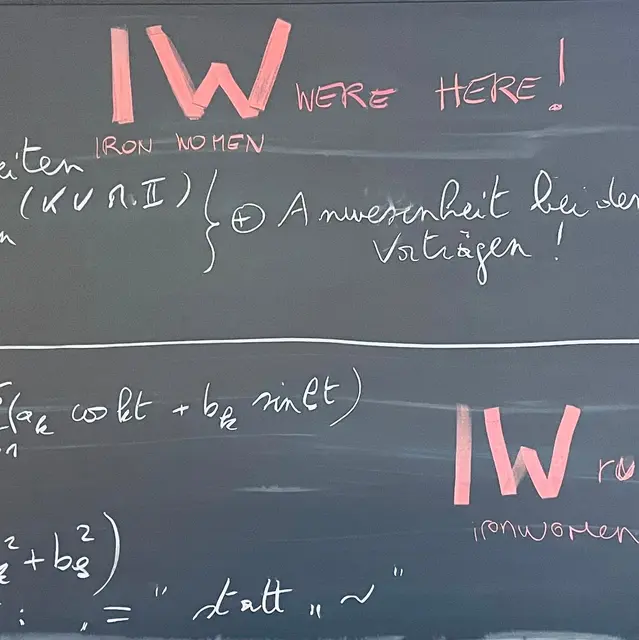 IW WERE HERE!
IRON WOMEN
eiten
(KVR.II) } ⊕ Anwesenheit bei den
n
Vorträgen!
(a_k cos kt + b_k sin kt)
IW
IRONWOMEN
² + b_k²)
: „=" statt „~"